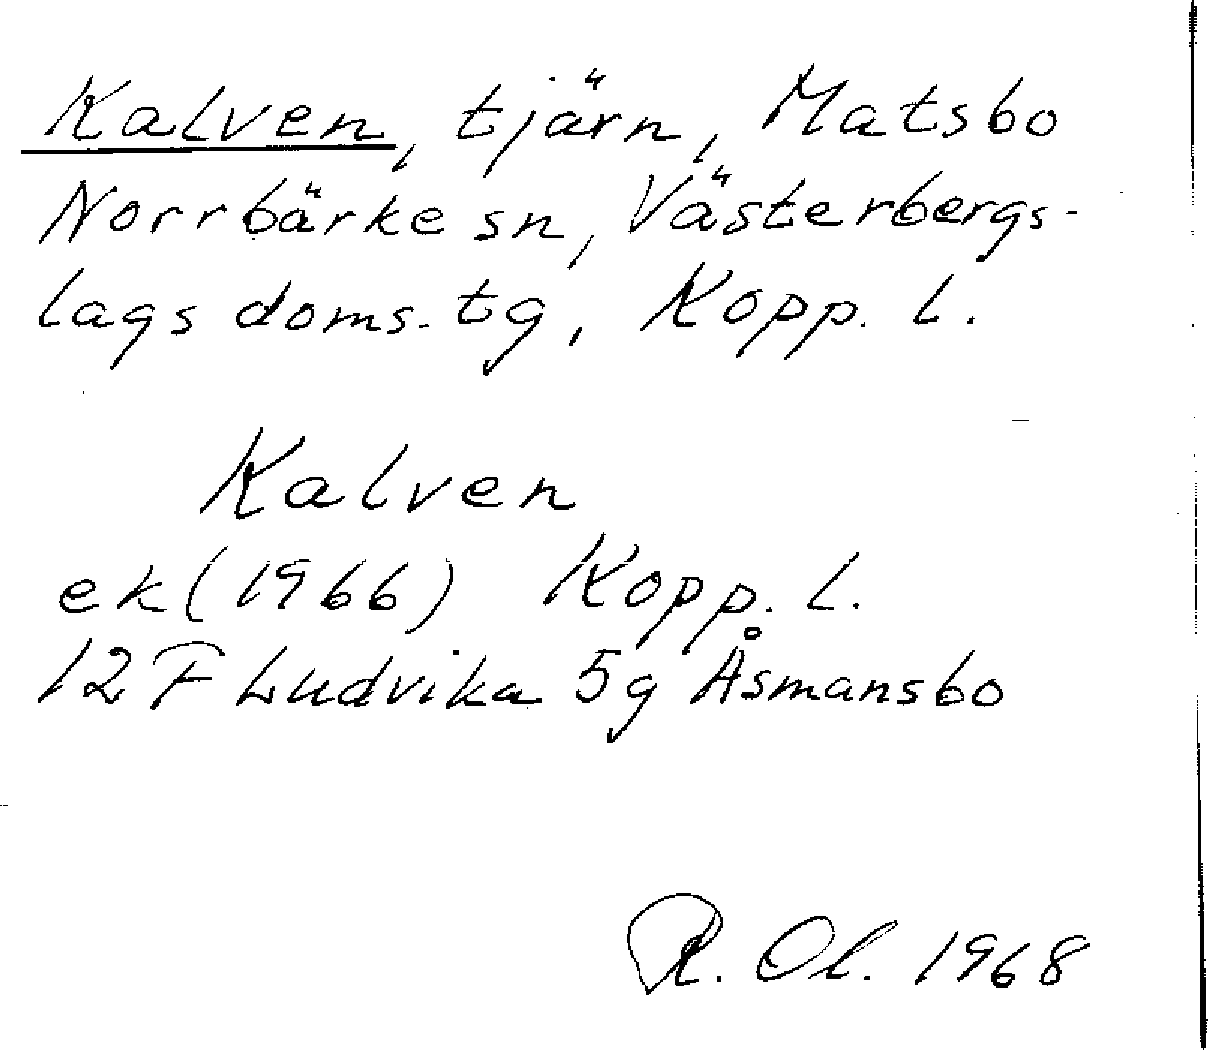 Kalven, tjärn, Matsbo
Norrbärke sn, Västerbergs-
lags doms. tg, Kopp. l.
Kalven
ek (1966) Kopp. l.
12 F Ludvika 5g Åsmansbo
R. Ol. 1968